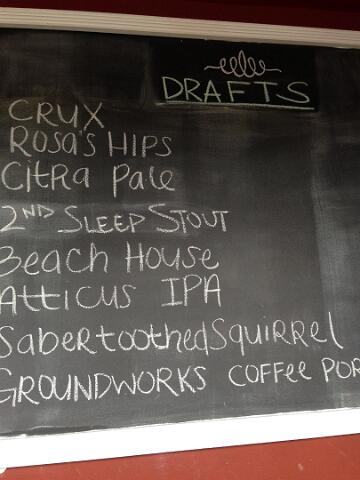 DRAFTS
CRUX
ROSA'S HIPS
CitRa Pale
2ND SLEEP STOUT
Beach House
Atticus IPA
SabertoothedSquirrel
GROUNDWORKS COFFee POR